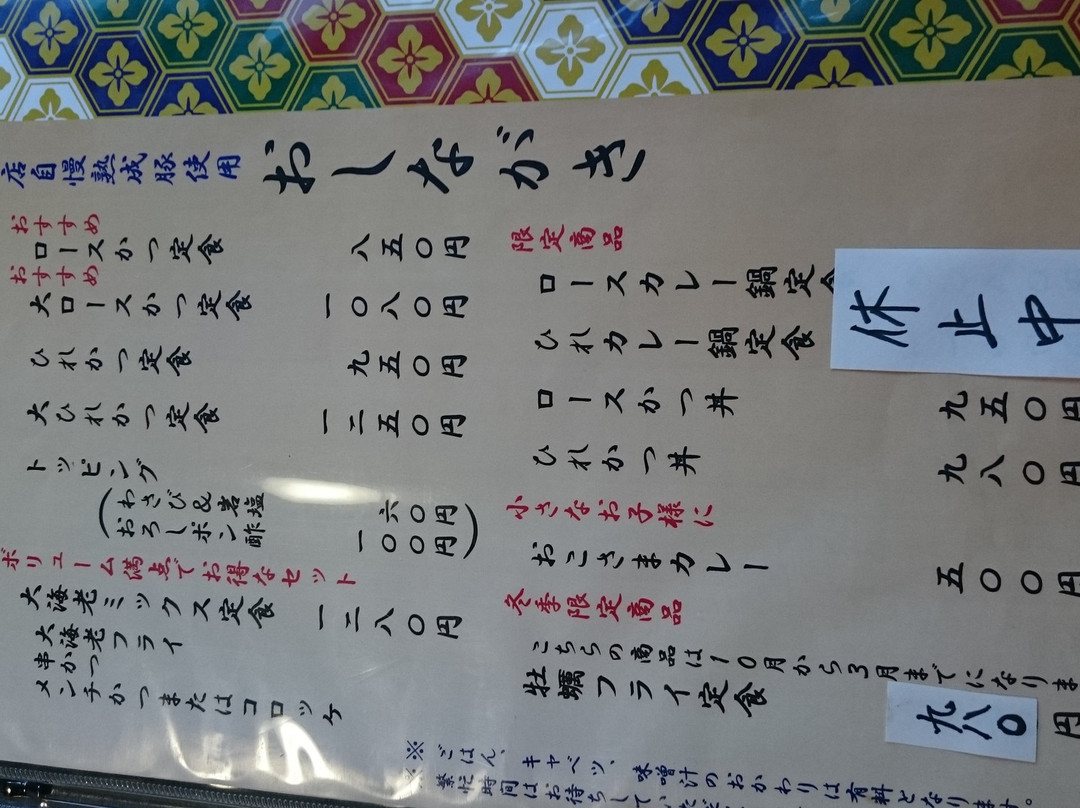 おしながき
店自慢熟成豚使用
おすすめ
ロースかつ定食 八五〇円
おすすめ
大ロースかつ定食 一〇八〇円
ひれかつ定食 九五〇円
大ひれかつ定食 一二五〇円
トッピング
(わさび&岩塩 六〇円
おろしポン酢 一〇〇円)
ボリューム満点でお得なセット
大海老ミックス定食 一二八〇円
大海老フライ
串かつ
メンチかつまたはコロッケ
限定商品
ロースカレー鍋定食
ひれカレー鍋定食
休止中
ロースかつ丼 九五〇円
ひれかつ丼 九八〇円
小さなお子様に
おこさまカレー 五〇〇円
冬季限定商品
こちらの商品は10月から3月までになりま
牡蠣フライ定食 九八〇円
※ごはん、キャベツ、味噌汁のおかわりは有料となります。
※繁忙時間はお待ちしていただ